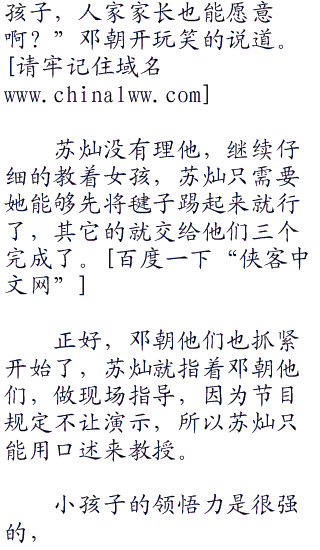 孩子，人家家长也能愿意
啊？”邓朝开玩笑的说道。
[请牢记住域名
www.china1ww.com]
苏灿没有理他，继续仔
细的教着女孩，苏灿只需要
她能够先将毽子踢起来就行
了，其它的就交给他们三个
完成了。[百度一下“侠客中
文网”]
正好，邓朝他们也抓紧
开始了，苏灿就指着邓朝他
们，做现场指导，因为节目
规定不让演示，所以苏灿只
能用口述来教授。
小孩子的领悟力是很强
的，